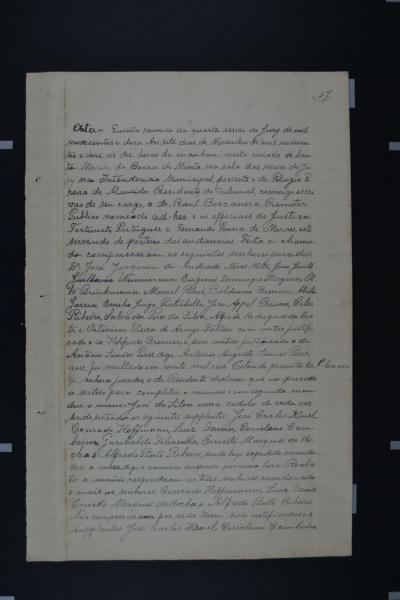 37
Acta - Quinta reunião da quarta sessão do Jury de mil
novecentos e doze. Aos sete dias de Novembro de mil novecen
tos e doze ás dez horas da manhan, nesta cidade de San
ta Maria da Bocca do Monte, na sala das sessões do Ju
ry na Intendencia Municipal, presente o dr. Pelagio Pe
reira de Almeida, Presidente do Tribunal, commigo escri
vão de seu cargo, o dr. Raul Boccanera, Promotor
Publico nomeado ad-hoc e os officiaes de Justiça
Fortunato Portuguez e Fernando Penna de Moraes, este
servindo de porteiro das audiencias. Feita a chama
da compareceram os seguintes senhores jurados:
Dr. José Joaquim de Andrade Neves Netto, João
Guilherme Neimmann, Eugenio Domingo
Brinkmann, Manoel Ribas, Balduino Brenner, Abilio
Garcia, Emilio Jorge João Appel Primo, Celso
Ribeiro, Salvador Pires da Silva, Alfredo Rodrigues da Cos
ta e Octaviano Vieira de Araujo. Faltou com motivo justifi
cado o sr. Brenner, e sem motivo justificado o sr.
Antonio Simões Pires, digo, Antonio Augusto Simões Pires,
que foi multado em vinte mil reis. Estando presentes
senhores jurados, o dr. Presidente declarou que ia proceder
a sorteio para completar o numero e em seguida man
dou o menor José da Silva uma cedula de cada vez
sendo sorteados os seguintes supplentes: José Carlos Kruel,
Conrado Hoffmann, Luiz Damo, Coriolano Cam
boim, Garibaldi Ernesto Marques da Ro
cha e Alfredo Pinto Ribeiro, sendo logo expedido manda
do e a ordem digo e a sessão suspensa por uma hora. Reaber
ta a sessão responderam os treze senhores mencionados
e mais os senhores Conrado Hoffmann, Luiz Damo
Ernesto Marques da Rocha e Alfredo Pinto Ribeiro.
Não compareceram por não terem sido notificados os
supplentes José Carlos Kruel, Coriolano Camboim